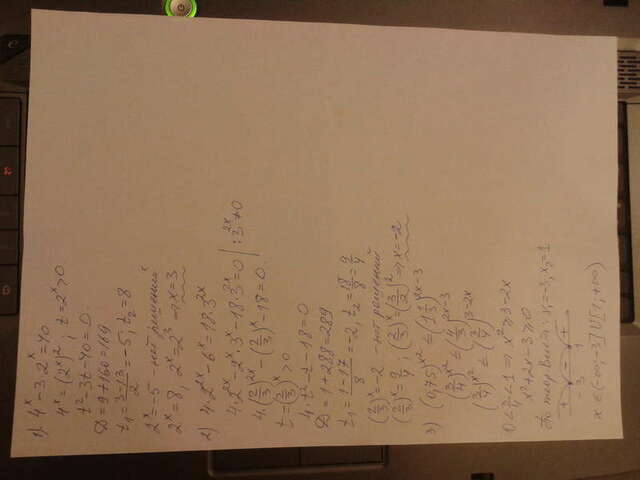 1). 4^x - 3·2^x = 40
4^x = (2^x)^2; t = 2^x > 0
t^2 - 3t - 40 = 0.
D = 9 + 160 = 169
t_1 = (3-13)/2 = -5, t_2 = 8
2^x = -5 - нет решений
2^x = 8, 2^x = 2^3 ⇒ x = 3
2) 4·2^2x - 6^x = 18·3^2x
4·2^2x - 2^x·3^x - 18·3^2x = 0 | :3^2x ≠ 0
4·(2/3)^2x - (2/3)^x - 18 = 0.
t = (2/3)^x > 0
4t^2 - t - 18 = 0
D = 1 + 288 = 289
t_1 = (1-17)/8 = -2, t_2 = 18/8 = 9/4
(2/3)^x = -2 - нет решений
(2/3)^x = 9/4, (2/3)^x = (3/2)^2 ⇒ x = -2
3) (0,75)^x^2 ≤ (1 1/3)^2x-3
(3/4)^x^2 ≤ (4/3)^2x-3
(3/4)^x^2 ≤ (3/4)^3-2x
0 < 3/4 < 1 ⇒ x^2 ≥ 3-2x
x^2 + 2x - 3 ≥ 0
По теор. Виета: x_1 = -3, x_2 = 1
+ - +
-3 1
x ∈ (-∞; -3] U [1; +∞)